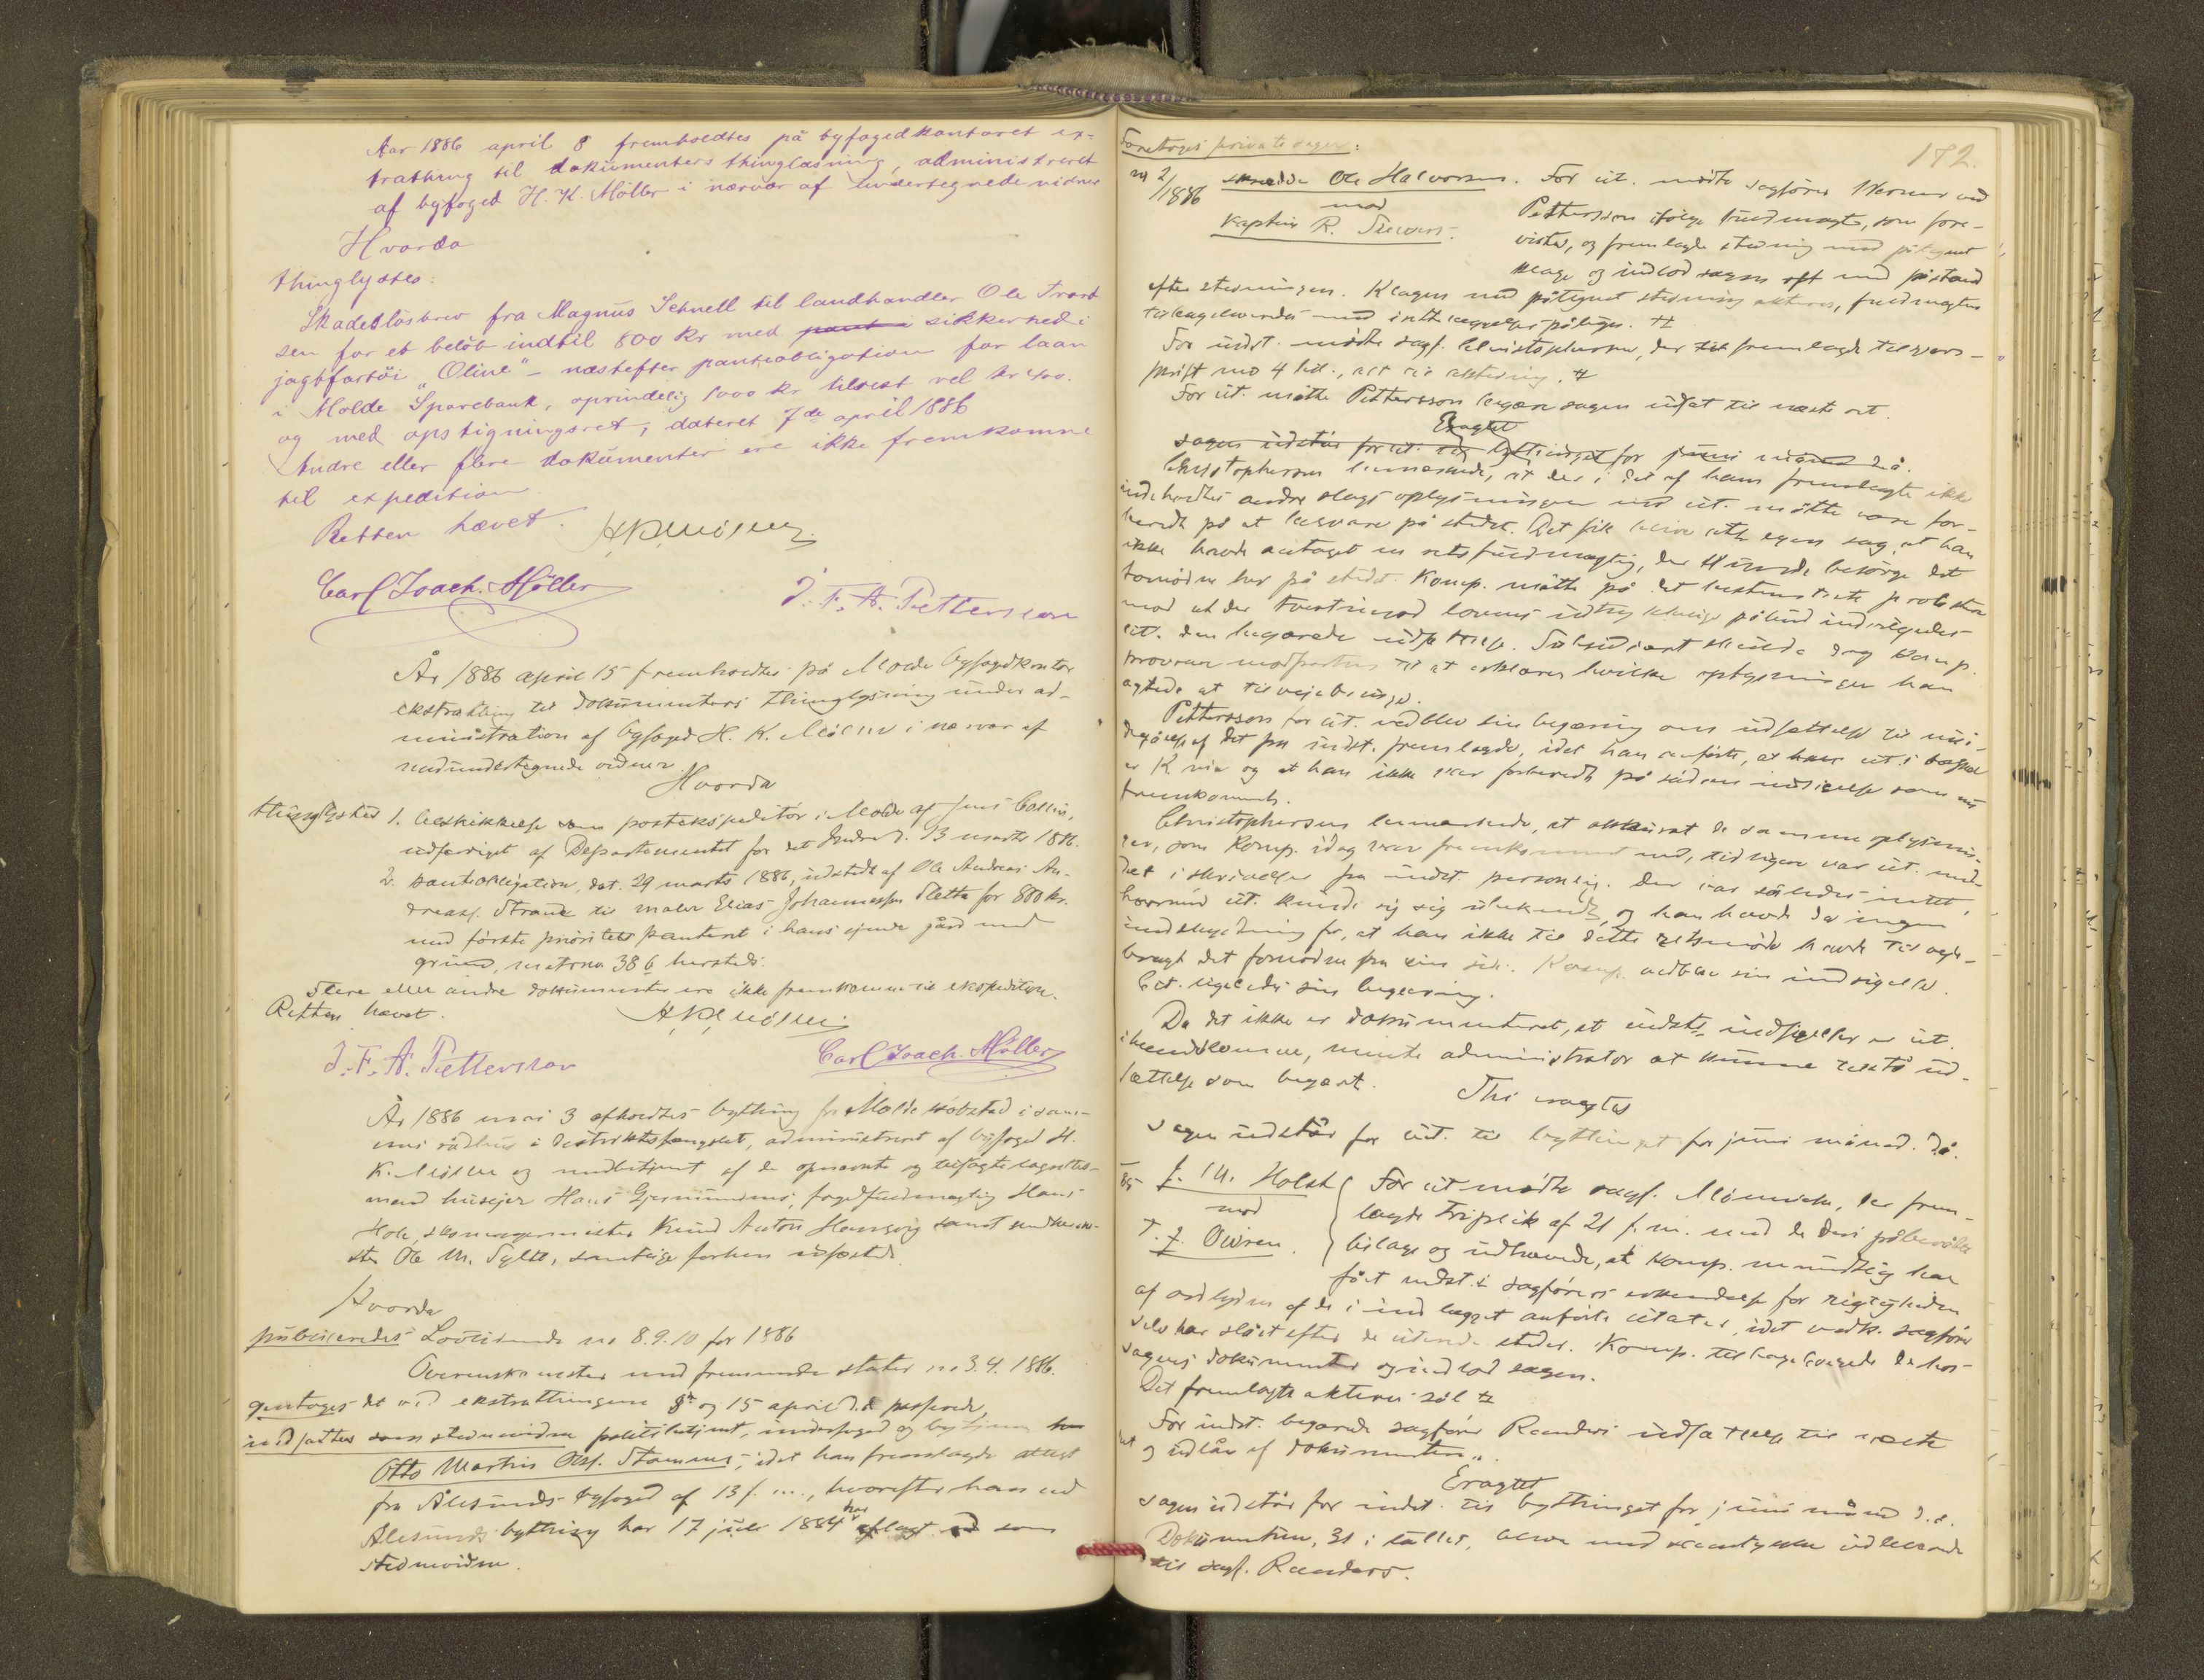 Aar 1886 april 8 fremholdtes på byfogedkontoret ex=
trathing til dokumenters thinglæsning, administreret
af byfoged H. K. Möller i nærvær af undertegnede vidner
Hvorda
thinglystes:
Skadeslösbrev fra Magnus Schnell til landhandler Ole Trond
sen for et belöb indtil 800 kr med pant i sikkerhed i
jagtfartöi "Oline" - næstefter panteobligation for laan
i Molde Sparebank, oprindelig 1000 kr tilrest vel kr 400.
og med opstigningsret, dateret 7de april 1886
Andre eller flere dokumenter ere ikke fremkomne
til expedition
Retten hævet.
HKMöller
Carl Joach. Möller
J. F. A. Pettersson
År 1886 april 15 fremholdtes på Molde byfogedkontor
ekstrathing til dokumenters thinglysning under ad-
ministration af byfoged H. K. Möller i nærvær af
medundertegnede vidner.
Hvorda
thinglystes 1. Beskikkelse som postekspeditör i Molde af Jens Collin,
udfærdiget af Departementet for det Indre d. 13 marts 1886.
2. panteobligation, dat. 29 marts 1886, udstedt af Ole Andreas An-
dreass. Strand til maler Elias Johannessen Sletta for 800 kr.
med förste prioritets panteret i hans eiende gård med
grund, matr no 386 hersteds.
Flere eller andre dokumenter ere ikke fremkomne til ekspedition.
Retten hævet.
HKMöller
J. F. A. Pettersson
Carl Joach. Möller
År 1886 mai 3 afholdtes bything for Molde kjöbstad i sam-
mes rådhus i distriktsfængslet, administreret af byfoged H.
K. Möller og medbetjent af de opnævnte og tilsagte lagrettes-
mænd husejer Hans Gjermundnes, fogedfuldmægtig Hans
Hole, skomagermester Knud Anton Hensvig samt
Ole M. Sylte, samtlige forhen edfæstede.
Hvorda
publiceredes Lovtidende no 8.9.10 for 1886
Overenskomster med fremmede stater no 3.4. 1886.
gentoges det ved ekstrathingene 8de og 15 april d.å. passerede,
indsattes som stevnevidne politibetjent,
Otto Martin Olsf. Stammes, idet han fremlagde attest
fra Ålesunds byfoged af 13 f. m., hvorefter han ved
Ålesunds bything har 17 juli 1884 har aflagt ed som
stevnevidne.
182.
Foretoges private sager:
no 2/1886 Ole Halvorsen. For cit. mödte sagförer Werner ved
mod
kaptein R. Siewers.
Pettersson ifölge fuldmagt, som fore-
vistes, og fremlagde stevning med påtegnet
klage og indlod sagen oft med påstand
efter stevningen. Klagen med påtegnet stevning akteres, fuldmagten
tilbageleverdes med påtegn.
For indst. mödte sagf. Christophersen, der fremlagde tilsvars-
skrift med 4 bil., alt til aktering.
For cit. mödte Pettersson begjære sagen udsat til næste ret.
Eragtet
sagen udstår for cit. til bythinget for juni måned d.å.
Christophersen bemærkede, at der i det af ham fremlagte ikke
indeholdtes andre slags oplysninger end cit. måtte være for-
beredt på at besvare på stedet. Det fik blive cits egen sag, at han
ikke havde antaget en retsfuldmægtig, der kunde besörge det
fornödne her på stedet. Komp. måtte på det bestemteste protestere
mod at der tvertimod lovens udtrykkelige påbud indrömmedes
cit. den begjærede udsættelse. Subsidiært skulde dog komp.
provocere modparten til at erklære hvilke oplysninger han
agtede at tilvejebringe.
Pettersson for cit. vedblev sin begjæring om udsættelse til imö-
degåelse af det fra indst. fremlagde, idet han anförte, at cit.
er K.via og at han ikke var forberedt på sådan indsigelse som nu
fremkommet.
Christophersen bemærkede, at akkurat de samme oplysnin-
ger, som komp. idag var fremkommet med, tidligere var cit. med-
delt i skrivelser fra indst. personlig. Der var således intet,
hvormed cit. kunde sig ubekendt, og han havde da ingen
undskyldning for, at han ikke til dette retsmöde havde tilveje-
bragt det fornödne fra sin side. Komp. vedblev sin indsigelse.
Cit. ligeledes sin begjæring.
Da det ikke er dokumenteret, at indsts indsigelser er cit.
ihændekomne, mente administrator at kunne tilstå ud-
sættelse som begjært.
Thi eragtes
Sagen udstår for cit. til bythinget for juni måned d.å.
/85 J. M. Holst
mod
T. J. Owren.
For cit mödte sagf. Mönnich, der frem-
lagde Triplik af 21 f.m. med de deri påberåbte
bilage og udhævede, at komp. mundtlig har
fået indst.s sagförers erkendelse for rigtigheden
af ordlyden af de i indlægget anförte citater, idet vedk. sagförer
selv har slået efter de citerede steder. Komp. tilbageleverede de hos-
sagens dokumenter og indlod sagen.
Det fremlagte akteres sål
For indst. begjærede sagförer Randers udsættelse til næste
ret og udlån af dokumenten.
Eragtet
sagen udstår for indst. til bythinget for juni måned d.å.
Dokumenten, 31 i tallet, blive med udleverede
til sagf. Randers.